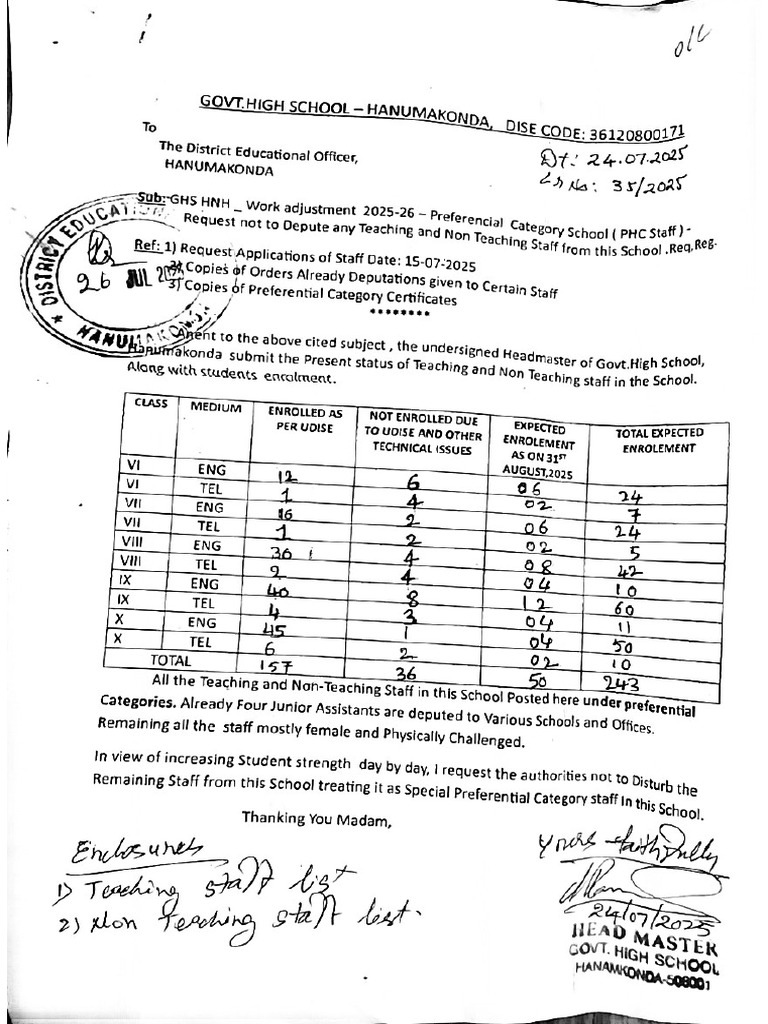 O/C
GOVT.HIGH SCHOOL – HANUMAKONDA, DISE CODE: 36120800171
To
The District Educational Officer,
HANUMAKONDA
Dt: 24.07.2025
Lr No: 35/2025
Sub:-GHS HNH _ Work adjustment 2025-26 – Preferencial Category School ( PHC Staff ) -
Request not to Depute any Teaching and Non Teaching Staff from this School .Req,Reg-
Ref: 1) Request Applications of Staff Date: 15-07-2025
2) Copies of Orders Already Deputations given to Certain Staff
3) Copies of Preferential Category Certificates
********
DISTRICT EDUCATION
26 JUL 2025
HANUMAKONDA
to the above cited subject , the undersigned Headmaster of Govt.High School,
Hanumakonda submit the Present status of Teaching and Non Teaching staff in the School.
Along with students enrolment.
CLASS MEDIUM ENROLLED AS PER UDISE NOT ENROLLED DUE TO UDISE AND OTHER TECHNICAL ISSUES EXPECTED ENROLEMENT AS ON 31ST AUGUST,2025 TOTAL EXPECTED ENROLEMENT
VI ENG 12 6 06 24
VI TEL 1 4 02 7
VII ENG 16 2 06 24
VII TEL 1 2 02 5
VIII ENG 30 4 08 42
VIII TEL 2 4 04 10
IX ENG 40 8 12 60
IX TEL 4 3 04 11
X ENG 45 1 04 50
X TEL 6 2 02 10
TOTAL 157 36 50 243
All the Teaching and Non-Teaching Staff in this School Posted here under preferential
Categories. Already Four Junior Assistants are deputed to Various Schools and Offices.
Remaining all the staff mostly female and Physically Challenged.
In view of increasing Student strength day by day, I request the authorities not to Disturb the
Remaining Staff from this School treating it as Special Preferential Category staff in this School.
Thanking You Madam,
Enclosures
1) Teaching staff list
2) Non Teaching staff list.
Yours faithfully
24/07/2025
HEAD MASTER
GOVT. HIGH SCHOOL
HANAMKONDA-506001